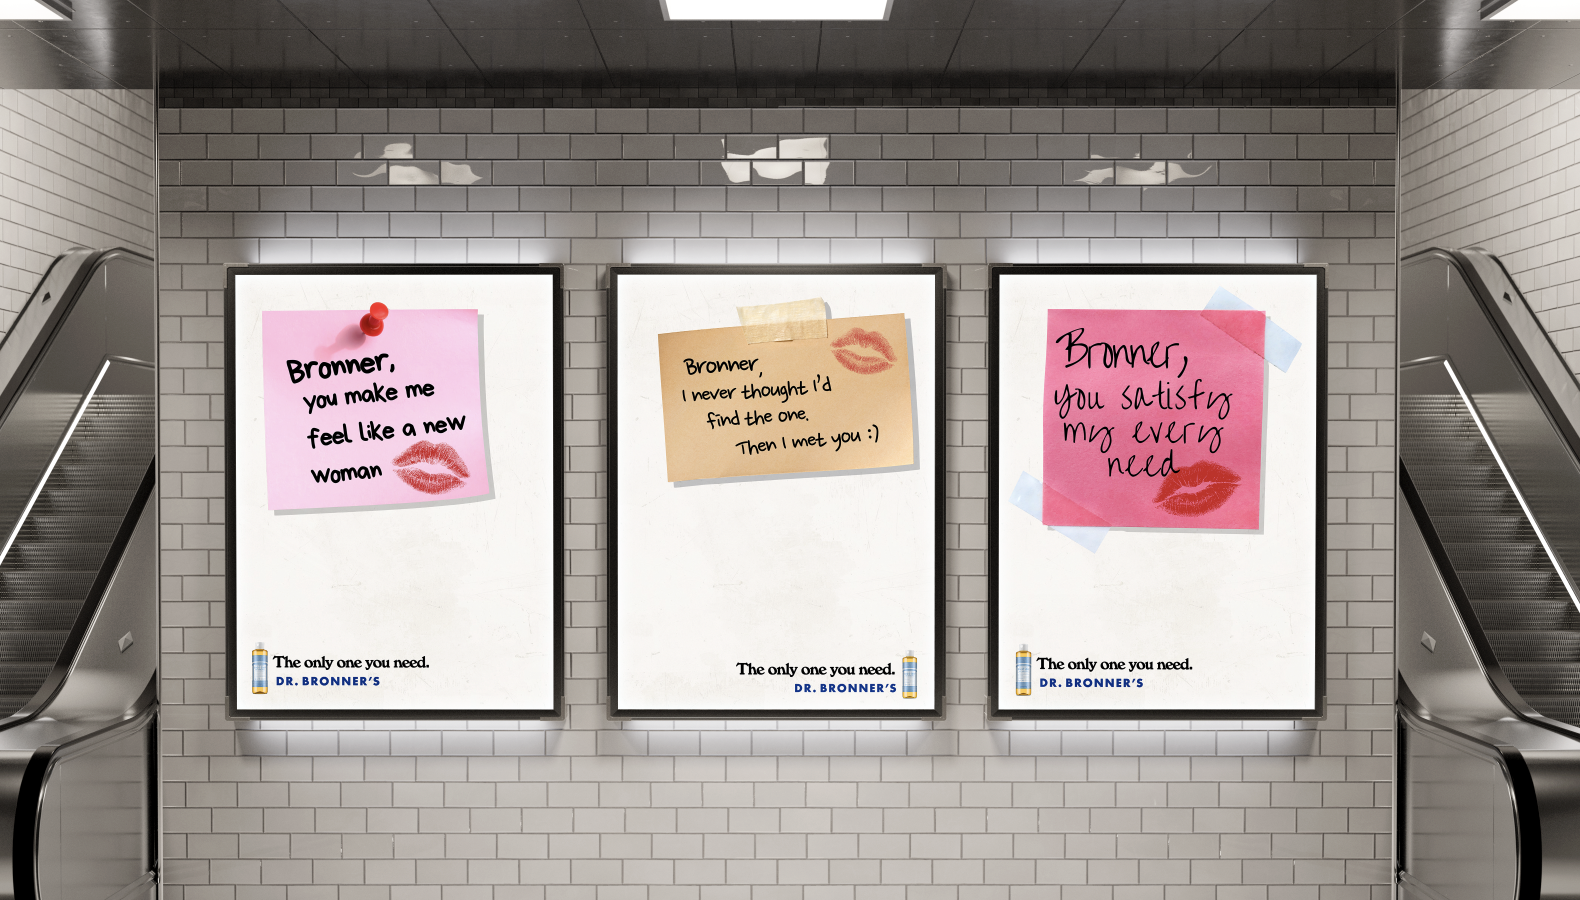 Bronner,
you make me
feel like a new
woman
The only one you need.
DR. BRONNER'S
Bronner,
I never thought I'd
find the one.
Then I met you :)
The only one you need.
DR. BRONNER'S
Bronner,
you satisfy
my every
need
The only one you need.
DR. BRONNER'S